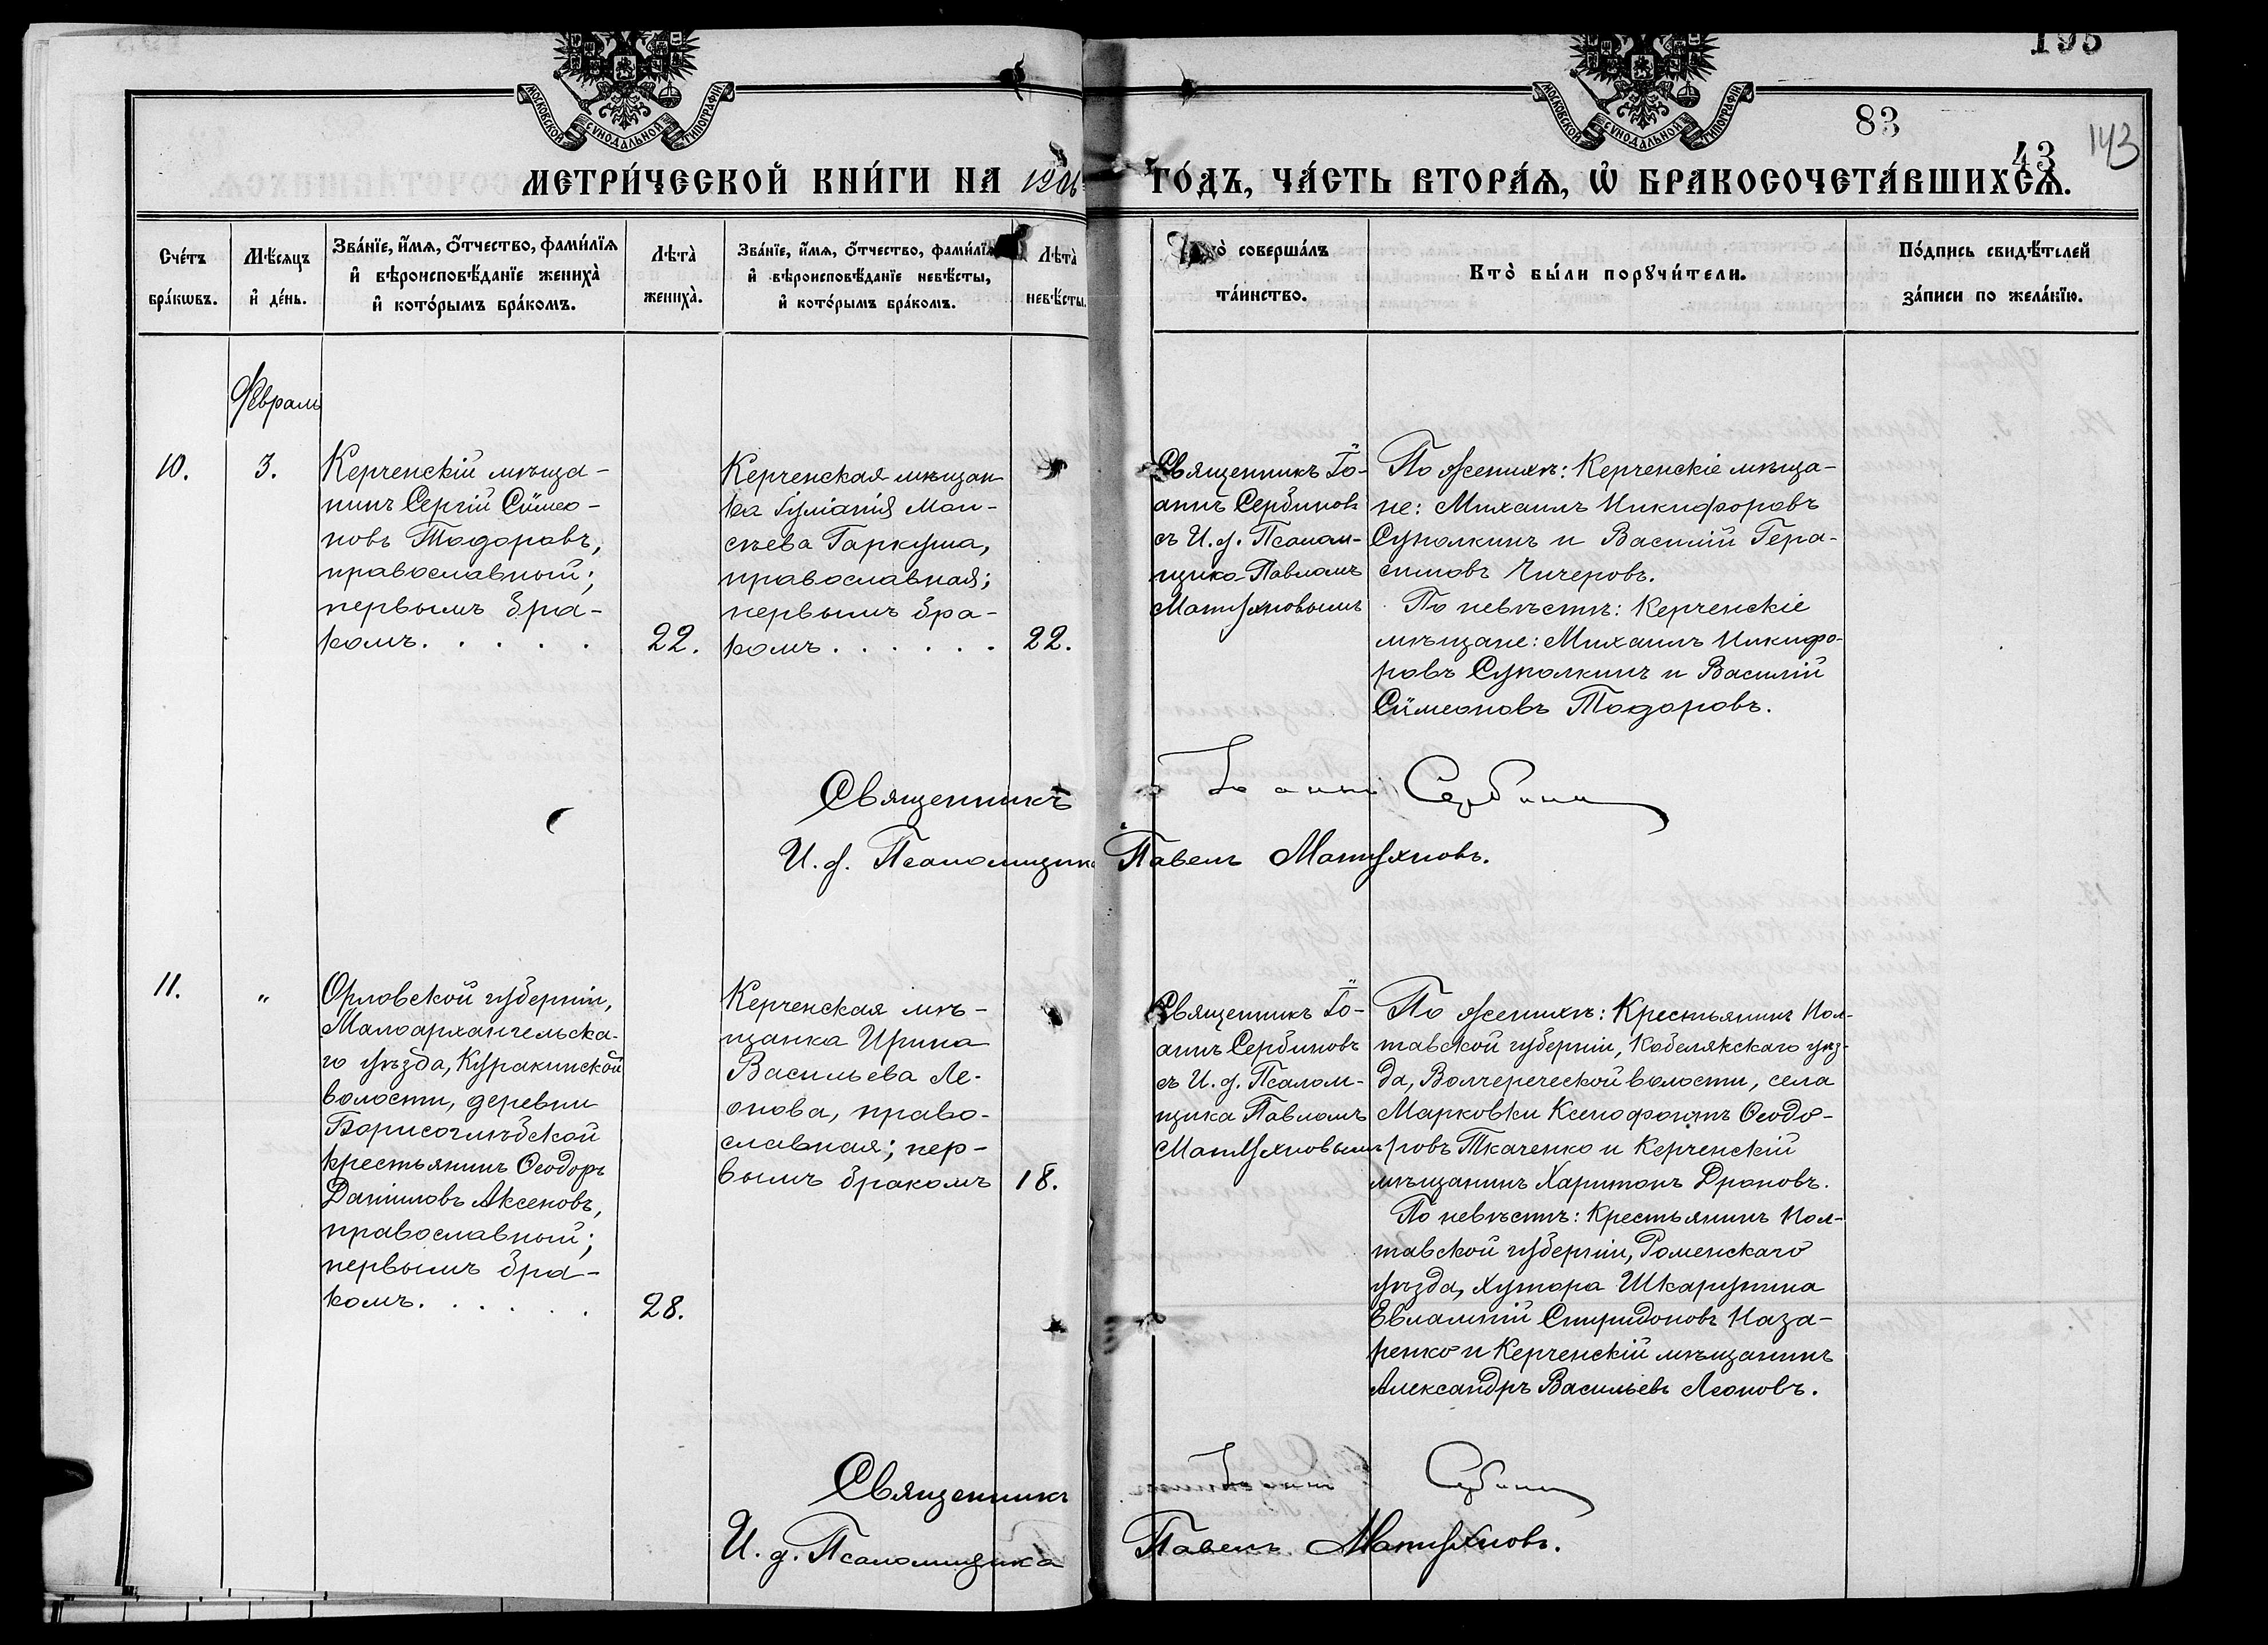 195
83
43
143
МОСКОВСКОЙ СѴНОДАЛЬНОЙ ТИПОГРАФІИ
МОСКОВСКОЙ СѴНОДАЛЬНОЙ ТИПОГРАФІИ
МЕТРИ́ЧЕСКОЙ КНИ́ГИ НА 1906
ГО́ДЪ, ЧА́СТЬ ВТОРА́Ѧ, Ѡ҆ БРАКОСОЧЕТА́ВШИХСѦ.
Сче́тъ
бра́кѡвъ.
Мѣ́сяцъ
и҆ де́нь.
Зва́нїе, и҆́мя, ѻ҆́тчество, фами́лїя
и҆ вѣроисповѣ́данїе жениха̀
и҆ кото́рымъ бра́комъ.
Лѣта̀
жениха̀.
Зва́нїе, и҆́мя, ѻ҆́тчество, фами́лїя
и҆ вѣроисповѣ́данїе невѣ́сты,
и҆ кото́рымъ бра́комъ.
Лѣта̀
невѣ́сты.
совершáлъ
та́инство.
Кто̀ бы́ли порꙋчи́тели.
По́дпись свидѣ́телей
за́писи по жела́нїю.
Февраль
10.
3.
Керченскій мѣща-
нинъ Сергій Сѵмео-
новъ Тодоровъ,
православный;
первымъ бра-
комъ. . . . . .
22.
Керченская мѣщан
ка Іуліанія Мои-
сѣева Гаркуша,
православная;
первымъ бра-
комъ . . . . . .
22.
Священникъ Іо-
аннъ Сербиновъ
съ И. д. Псалом-
щика Павломъ
Матюхновымъ
По женихѣ: Керченскіе мѣща-
не: Михаилъ Никифоровъ
Суполкинъ и Василій Гера-
симовъ Чичеровъ.
По невѣстѣ: Керченскіе
мѣщане: Михаилъ Никифо-
ровъ Суполкинъ и Василій
Сѵмеоновъ Тодоровъ.
Священникъ Іоаннъ Сербиновъ
И. д. Псаломщика Павелъ Матюхновъ.
11.
"
Орловской губерніи,
Малоархангельска-
го уѣзда, Куракинской
волости, деревни
Борисоглѣбской
крестьянинъ Ѳеодоръ
Даніиловъ Аксеновъ,
православный;
первымъ бра-
комъ. . . . . .
28.
Керченская мѣ-
щанка Ирина
Васильева Ле-
онова, право-
славная; пер-
вымъ бракомъ
18.
Священникъ Іо-
аннъ Сербиновъ
съ И. д. Псалом-
щика Павломъ
Матюхновымъ
По женихѣ: Крестьянинъ Пол-
тавской губерніи, Кобелякскаго уѣз-
да, Волчереческой волости, села
Марковки Ксенофонтъ Ѳеодо-
ровъ Ткаченко и Керченскій
мѣщанинъ Харитонъ Дроновъ.
По невѣстѣ: Крестьянинъ Пол-
тавской губерніи, Роменскаго
уѣзда, хутора Шкарупина
Евлампій Спиридоновъ Наза-
ренко и Керченскій мѣщанинъ
Александръ Васильевъ Леоновъ.
Священникъ Іоаннъ Сербиновъ
И. д. Псаломщика Павелъ Матюхновъ.